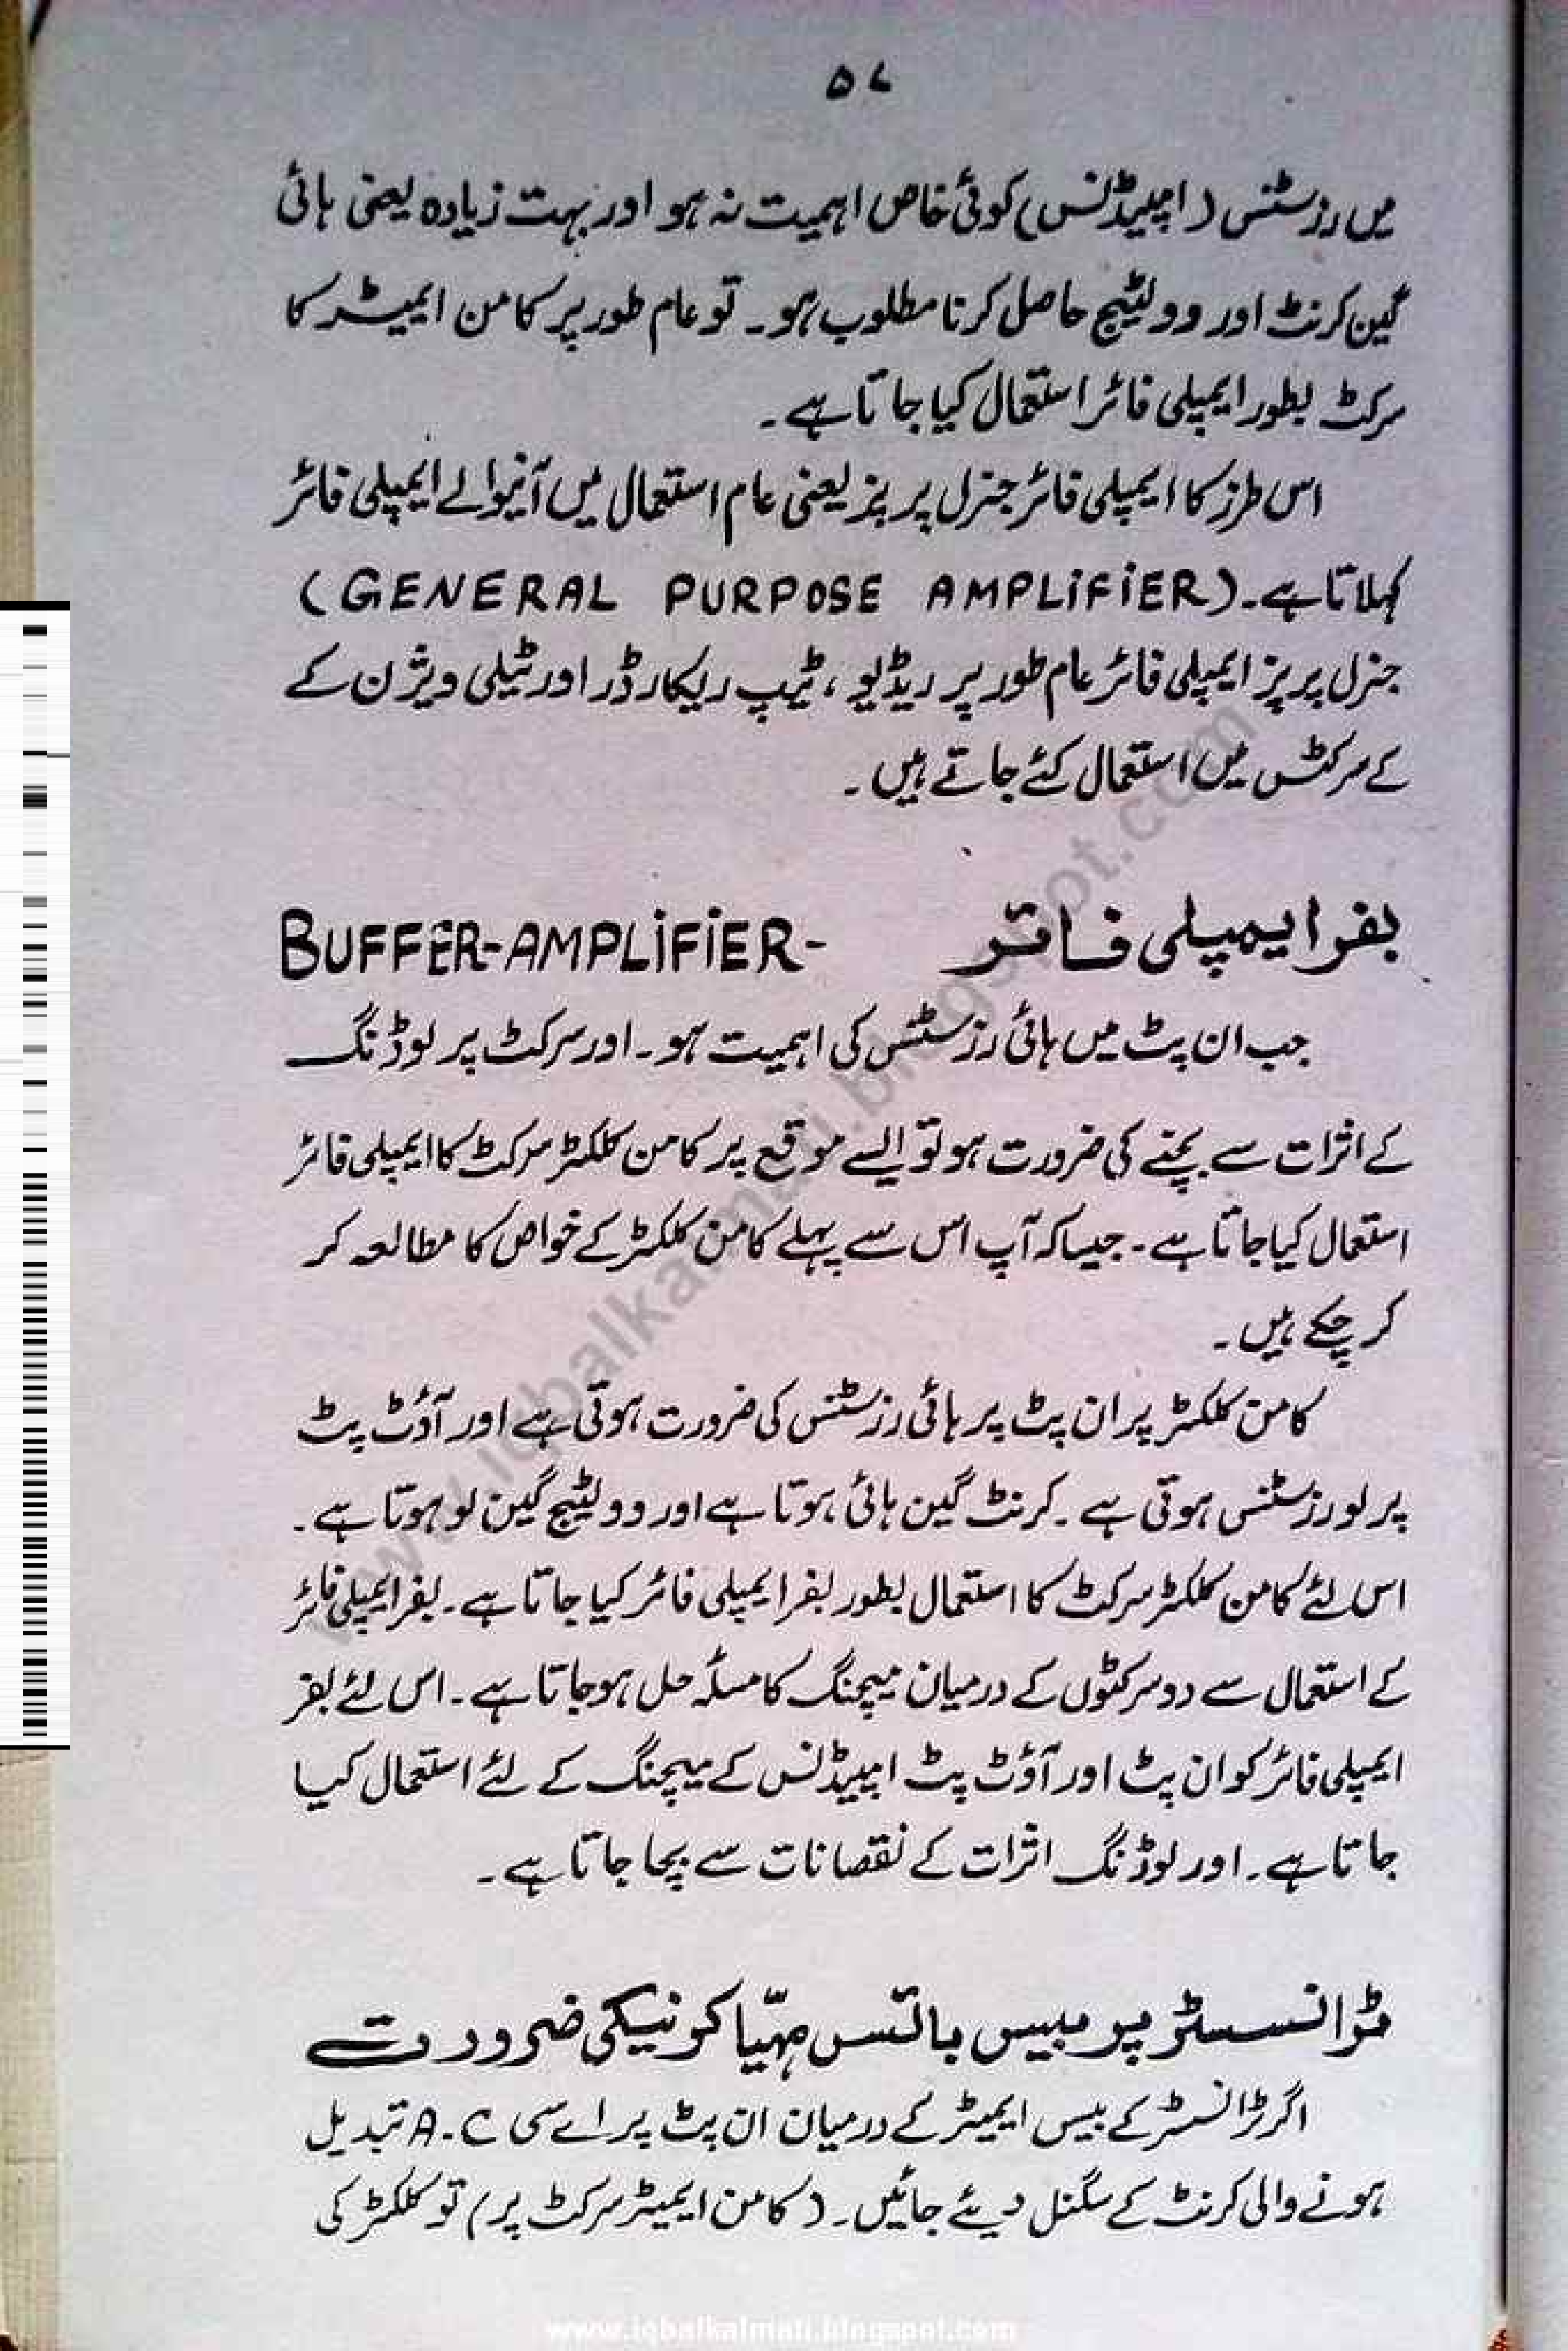 ۵۷
میں رزسٹنس (امپیڈنس) کوئی خاص اہمیت نہ ہو اور بہت زیادہ یعنی ہائی
گین کرنٹ اور وولٹیج حاصل کرنا مطلوب ہو۔ تو عام طور پر کامن ایمیٹر کا
سرکٹ بطور ایمپلی فائر استعمال کیا جاتا ہے۔
اس طرز کا ایمپلی فائر جنرل پرپز یعنی عام استعمال میں آنیوالے ایمپلی فائر
کہلاتا ہے۔ (GENERAL PURPOSE AMPLiFiER)
جنرل پرپز ایمپلی فائر عام طور پر ریڈیو، ٹیپ ریکارڈر اور ٹیلی ویژن کے
کے سرکٹس میں استعمال کئے جاتے ہیں۔
بفر ایمپلی فائر BUFFER-AMPLiFiER-
جب ان پٹ میں ہائی رزسٹنس کی اہمیت ہو۔ اور سرکٹ پر لوڈنگ
کے اثرات سے بچنے کی ضرورت ہو تو ایسے موقع پر کامن کلکٹر سرکٹ کا ایمپلی فائر
استعمال کیا جاتا ہے۔ جیسا کہ آپ اس سے پہلے کامن کلکٹر کے خواص کا مطالعہ کر
کر چکے ہیں۔
کامن کلکٹر پر ان پٹ پر ہائی رزسٹنس کی ضرورت ہوتی ہے اور آؤٹ پٹ
پر لو رزسٹنس ہوتی ہے۔ کرنٹ گین ہائی ہوتا ہے اور وولٹیج گین لو ہوتا ہے۔
اس لئے کامن کلکٹر سرکٹ کا استعمال بطور بفر ایمپلی فائر کیا جاتا ہے۔ بفر ایمپلی فائر
کے استعمال سے دو سرکٹوں کے درمیان میچنگ کا مسئلہ حل ہو جاتا ہے۔ اس لئے بفر
ایمپلی فائر کو ان پٹ اور آؤٹ پٹ امپیڈنس کے میچنگ کے لئے استعمال کیا
جاتا ہے۔ اور لوڈنگ اثرات کے نقصانات سے بچا جاتا ہے۔
ٹرانسسٹر پر بیس بائس مہیّا کرنیکی ضرورت
اگر ٹرانسٹر کے بیس ایمیٹر کے درمیان ان پٹ پر اے سی A.C تبدیل
ہونے والی کرنٹ کے سگنل دیئے جائیں۔ (کامن ایمیٹر سرکٹ پر) تو کلکٹر کی
www.iqbalkalmati.blogspot.com
www.iqbalkalmati.blogspot.com